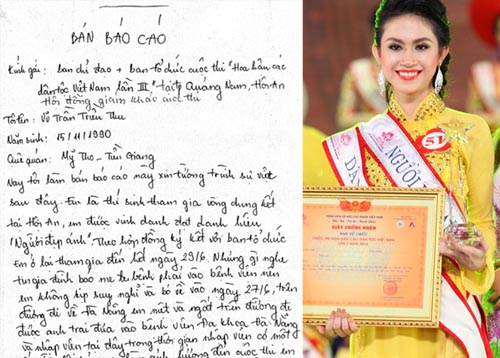 BẢN BÁO CÁO
Kính gửi: ban chỉ đạo + ban tổ chức cuộc thi "Hoa hậu các
dân tộc Việt Nam lần III" tại Quảng Nam, Hội An
Hội Đồng giám khảo cuộc thi
Tôi tên: Võ Trần Triều Thu
Năm sinh: 15/11/1990
Quê quán: Mỹ Tho - Tiền Giang
Nay tôi làm bản báo cáo này xin tường trình sự việc
sau đây. Em là thí sinh tham gia vòng chung kết
tại Hội An, em được vinh danh đạt danh hiệu
"Người đẹp ảnh" Theo hợp đồng ký kết với ban tổ chức
Em ở lại tham gia đến hết ngày 29/6. Nhưng vì nghe
tin gia đình báo mẹ bệnh phải vào bệnh viện nên
em không kịp suy nghĩ và bỏ về vào ngày 27/6, trên
đường đi về Đà Nẵng em mệt và ngất trên đường đi
được anh trai đưa vào bệnh viện Đa khoa Đà Nẵng
và nhập viện tại đây trong thời gian nhập viện có một
hưởng đến cuộc thi em
NGƯỜI
51
CỘNG HÒA XÃ HỘI CHỦ NGHĨA VIỆT NAM
GIẤY CHỨNG NHẬN
BAN TỔ CHỨC
CUỘC THI HOA HẬU CÁC DÂN TỘC VIỆT NAM